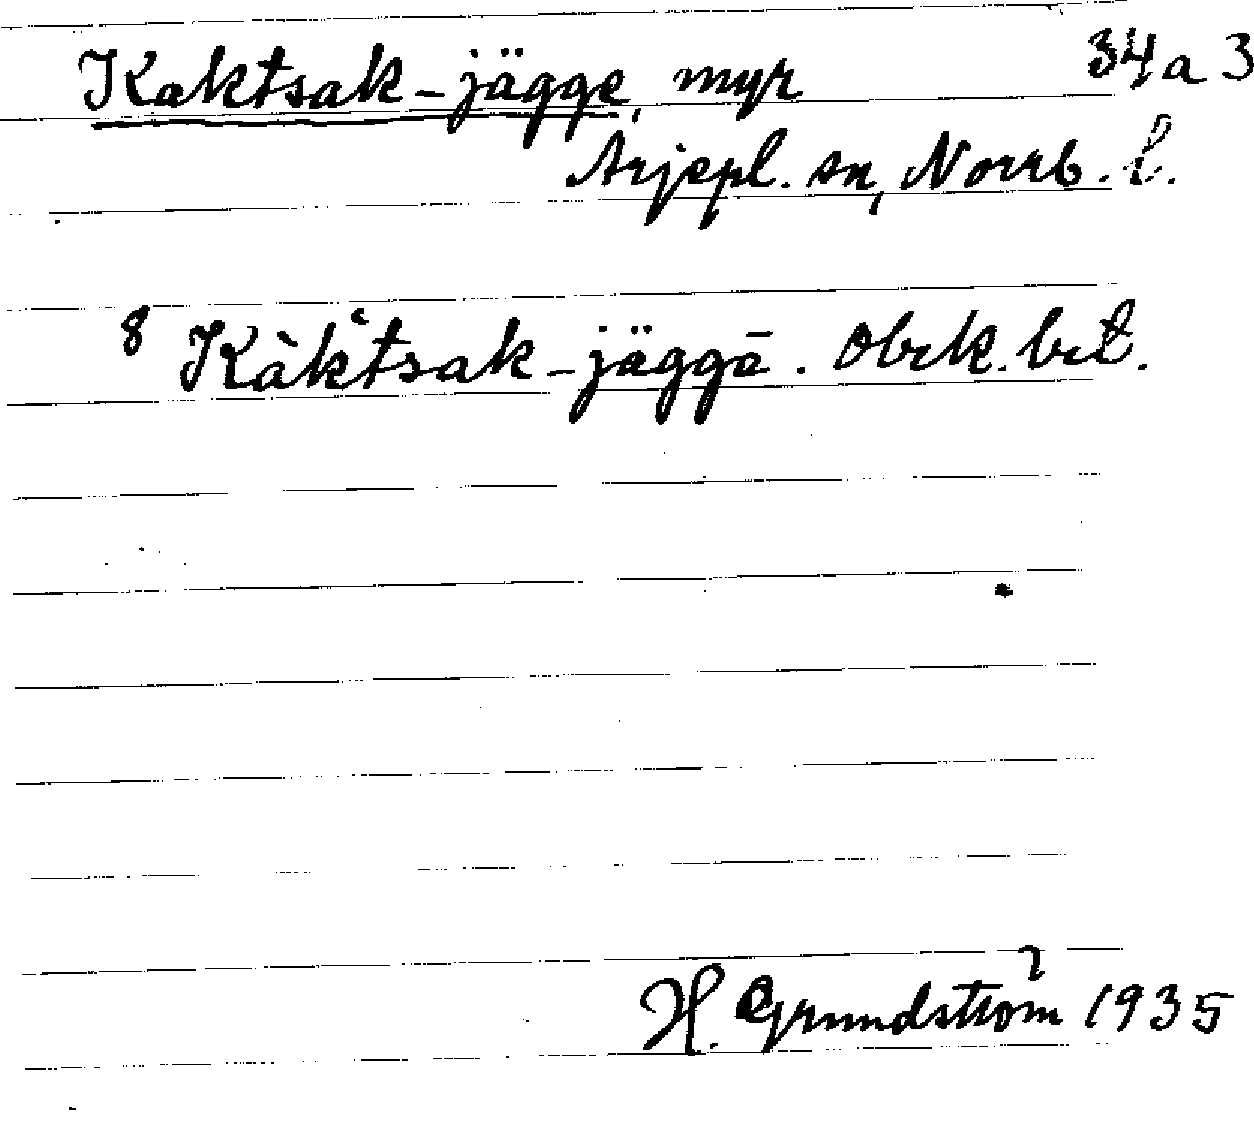 Kaktsak-jägge, myr 34a3
Arjepl. sn, Norrb. l.
8 Kàk‘tsak-jäggē. Obek. bet.
H. Grundström 1935